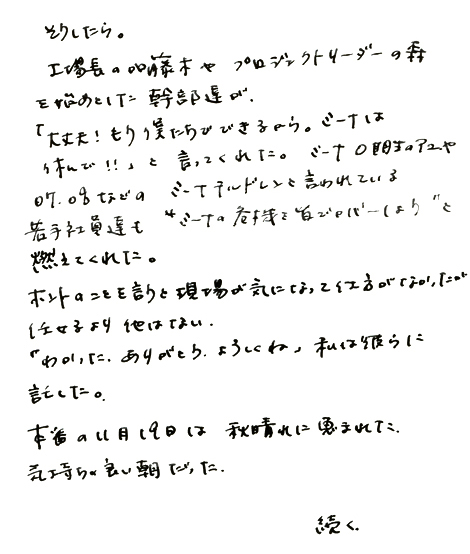 そうしたら。
工場長の加藤木や プロジェクトリーダーの森
を始めとした幹部達が、
「大丈夫！もう僕たちでできるから。ミーナは
休んで！！」と言ってくれた。ミーナ0期生のアユや
07.08などの ミーナチルドレンと言われている
若手社員達も “ミーナの を皆でカバーしよう”と
燃えてくれた。
ホントのことを言うと現場が気になって仕方がなかったが
任せるより他はない。
“わかった、ありがとう、よろしくね、私は彼らに
託した。
本番の11月19日は 秋晴れに恵まれた、
気持ちの良い朝だった。
続く。